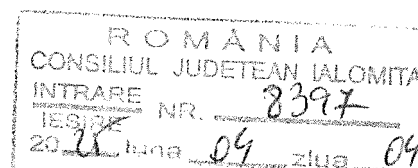 ROMÂNIA
CONSILIUL JUDETEAN IALOMITA
INTRARE
IESIRE NR. 8397
20 luna 04 ziua 04